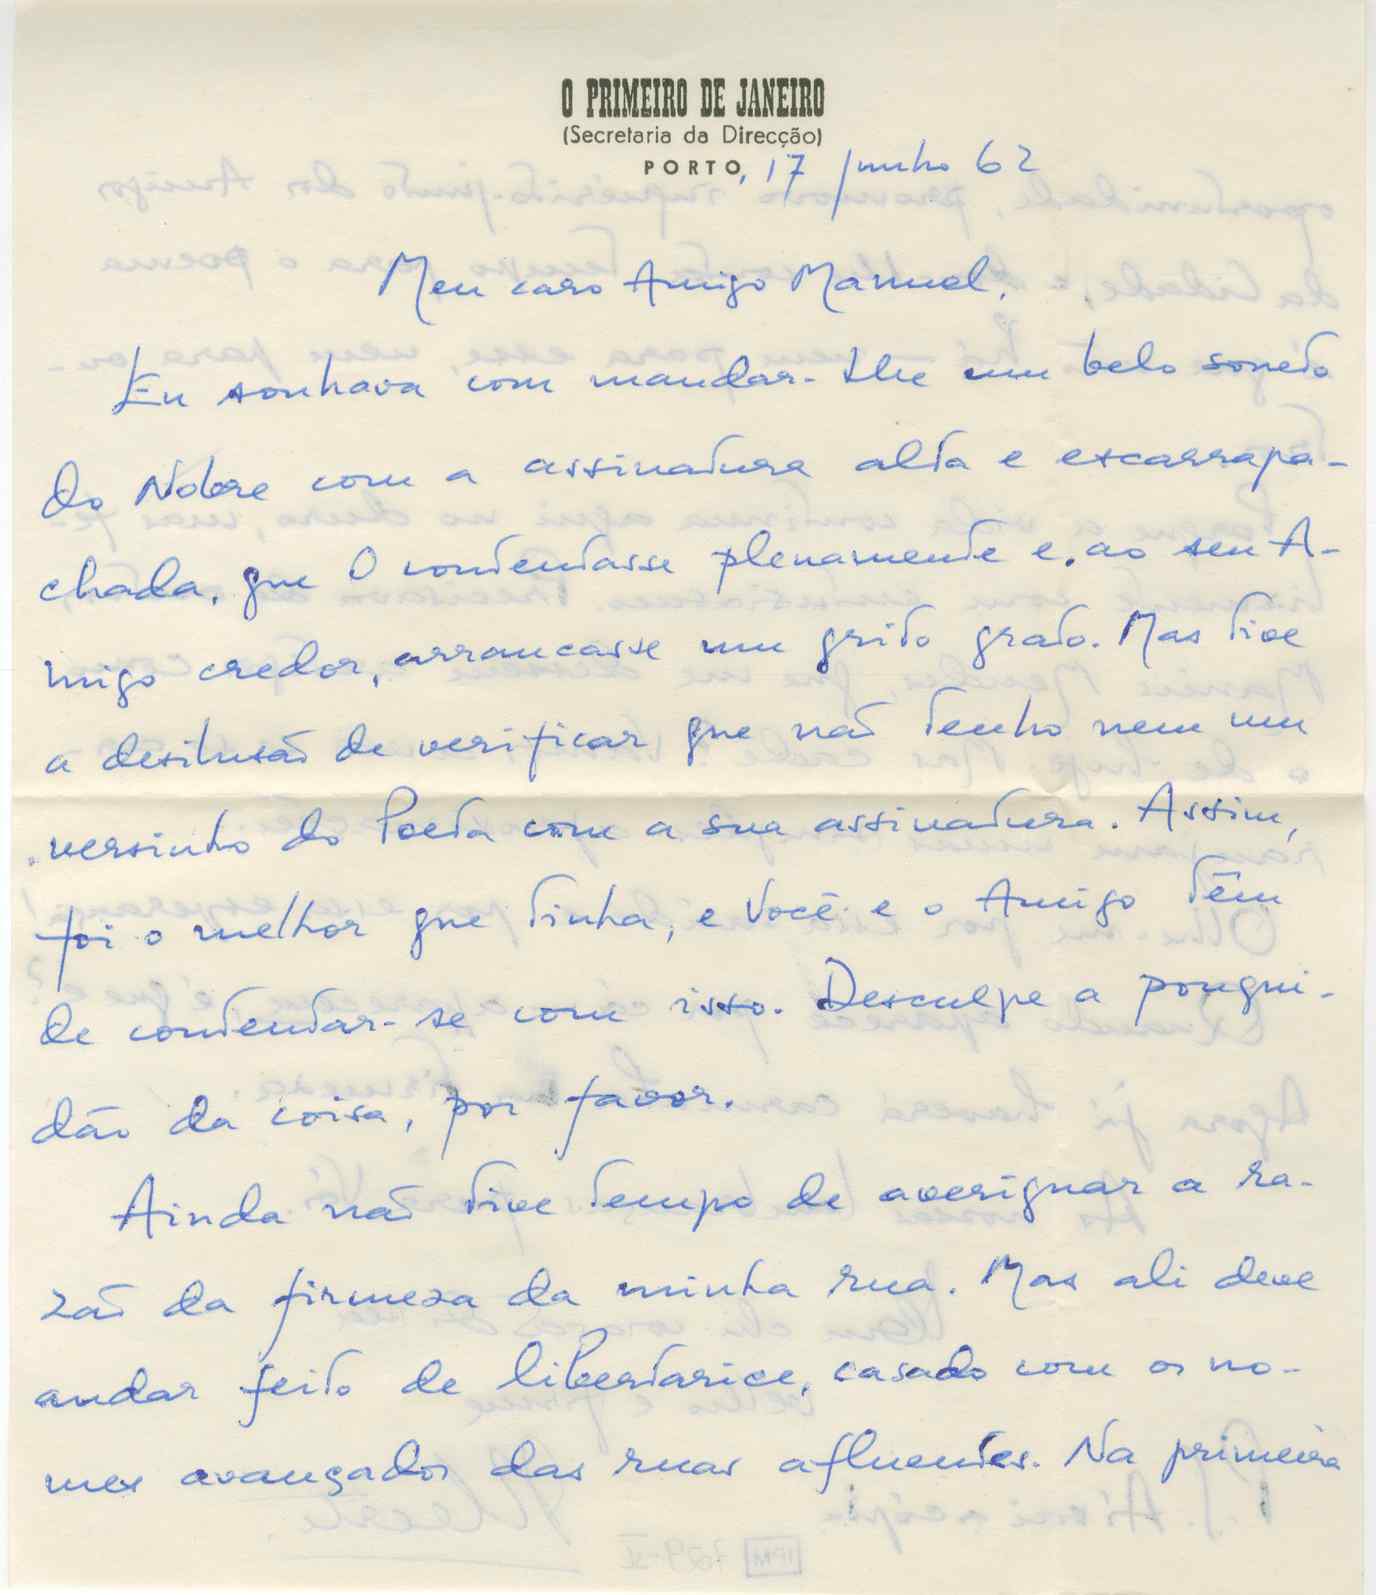 O PRIMEIRO DE JANEIRO
(Secretaria da Direcção)
PORTO, 17 Junho 62
Meu caro Amigo Manuel,
Eu sonhava com mandar-lhe um belo soneto
do Nobre com a assinatura alta e escarrapa-
chada, que O contentasse plenamente e, ao seu A-
migo credor, arrancasse um grito grato. Mas tive
a desilusão de verificar que não tenho nem um
versinho do Poeta com a sua assinatura. Assim,
foi o melhor que tinha, e Você e o Amigo têm
de contentar-se com isso. Desculpe a pouqui-
dão da coisa, por favor.
Ainda não tive tempo de averiguar a ra-
zão da firmeza da minha rua. Mas ali deve
andar feito de libertarice, casado com os no-
mes avançados das ruas afluentes. Na primeira